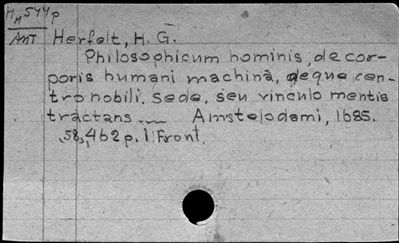 HH544p
Ant Herfelt, H. G.
Philosophicum hominis, de cor-
poris humani machina, deque cen-
tro nobili, sede, seu vinculo mentis
tractans ___ Amstelodami, 1685.
,58,,462 p. 1 Front.